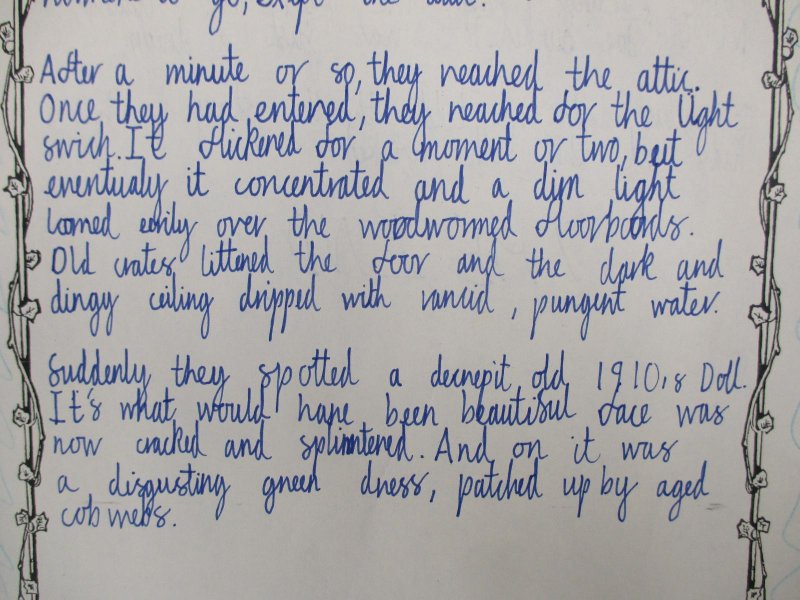 to go, exept the attic.
After a minute or so, they reached the attic.
Once they had entered, they reached for the light
swich. It flickered for a moment or two, but
eventualy it concentrated and a dim light
loomed eerily over the woodwormed floorboards.
Old crates littered the door and the dark and
dingy ceiling dripped with rancid, pungent water.
Suddenly they spotted a decrepit old 1910,s Doll.
It's what would have been beautiful face was
now cracked and splintered. And on it was
a disgusting green dress, patched up by aged
cobwebs.